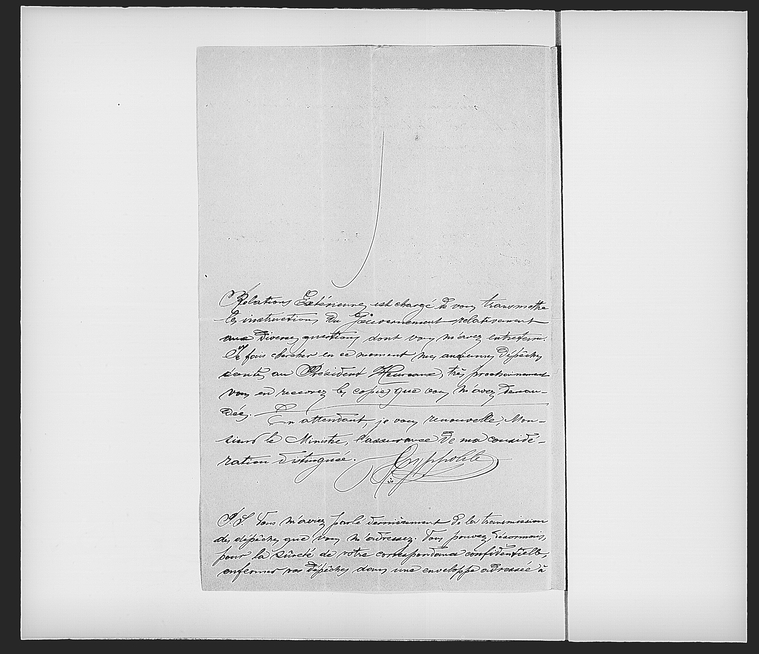 Relations Extérieures, est chargé de vous transmettre
les instructions du Gouvernement relativement
aux diverses questions dont vous m'avez entretenu.
Je fais chercher en ce moment mes anciennes dépêches
au Président Heureaux, très prochainement
vous en recevrez les copies que vous m'avez deman-
dées. En attendant, je vous renouvelle, Mon-
sieur le Ministre, l'assurance de ma considé-
ration distinguée.
Hyppolite
P.S. Vous m'avez parlé dernièrement de la transmission
des dépêches que vous m'adressez. Vous pouvez désormais,
pour la sûreté de votre correspondance confidentielle,
enfermer vos dépêches dans une enveloppe adressée à